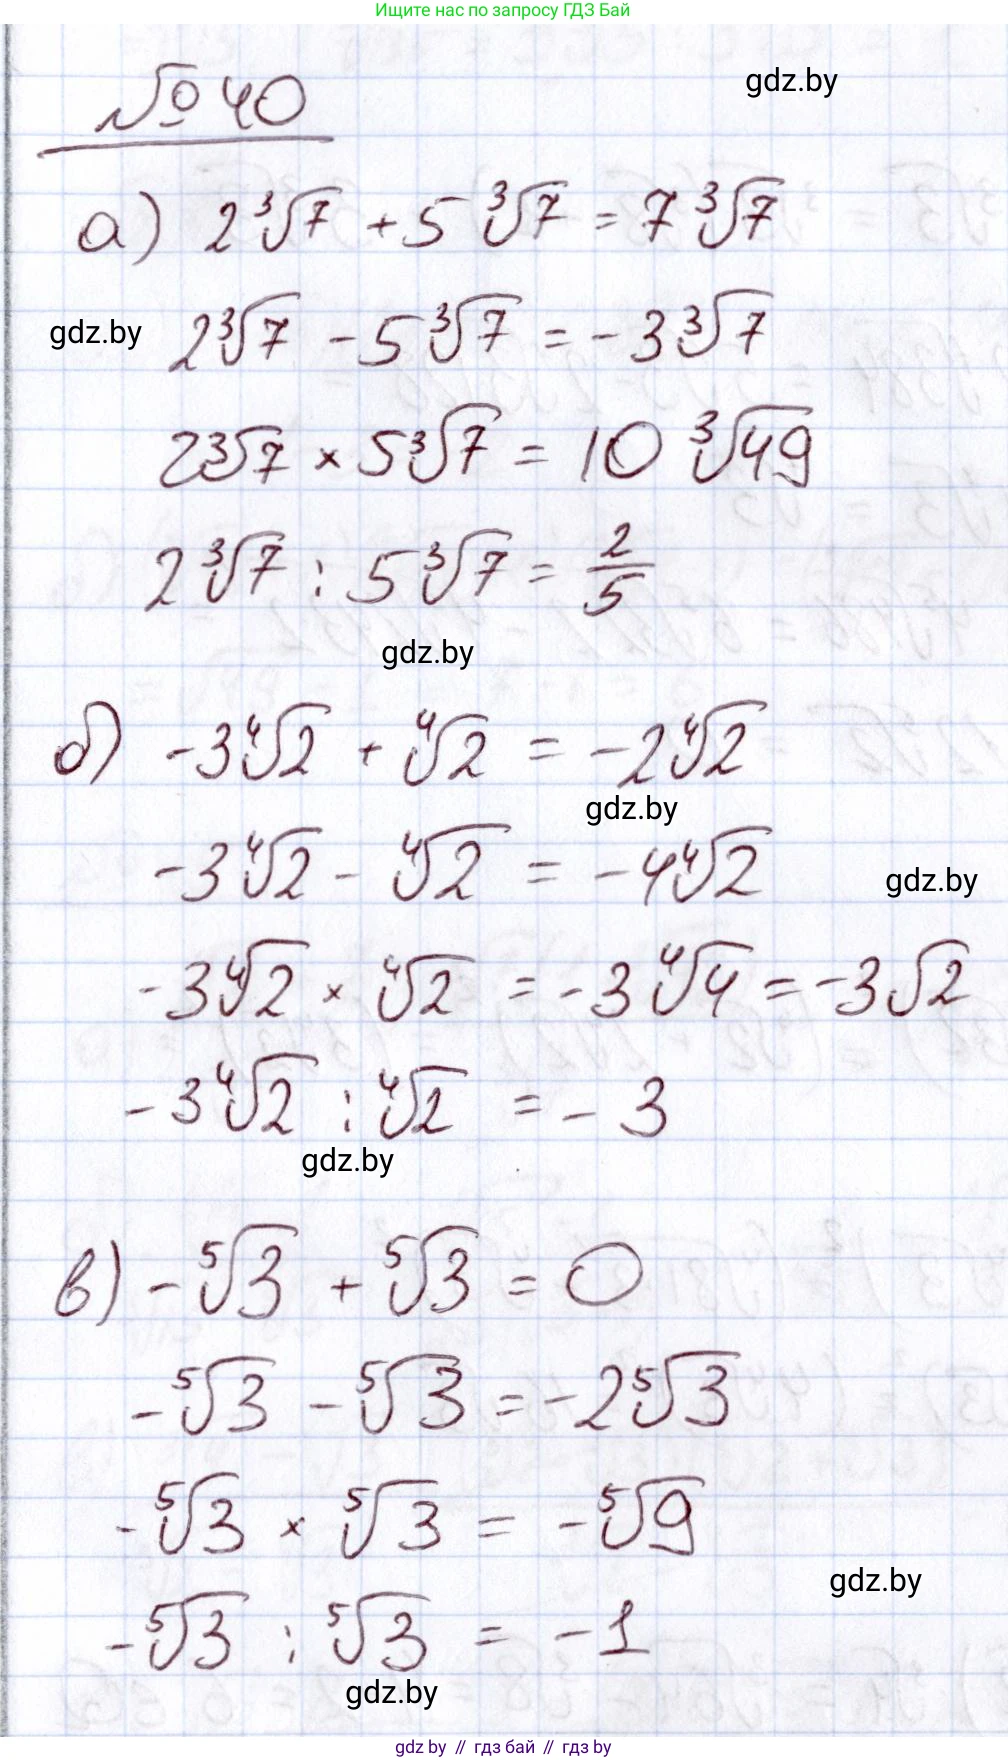 Ищите нас по запросу ГДЗ Бай
№ 40
gdz.by
а) 2∛7 + 5∛7 = 7∛7
gdz.by
2∛7 - 5∛7 = -3∛7
2∛7 × 5∛7 = 10∛49
2∛7 : 5∛7 = 2/5
gdz.by
б) -3∜2 + ∜2 = -2∜2
gdz.by
-3∜2 - ∜2 = -4∜2
gdz.by
-3∜2 × ∜2 = -3∜4 = -3√2
-3∜2 : ∜2 = -3
gdz.by
в) -⁵√3 + ⁵√3 = 0
-⁵√3 - ⁵√3 = -2⁵√3
-⁵√3 × ⁵√3 = -⁵√9
gdz.by
-⁵√3 : ⁵√3 = -1
gdz.by
gdz by // гдз бай // gdz by